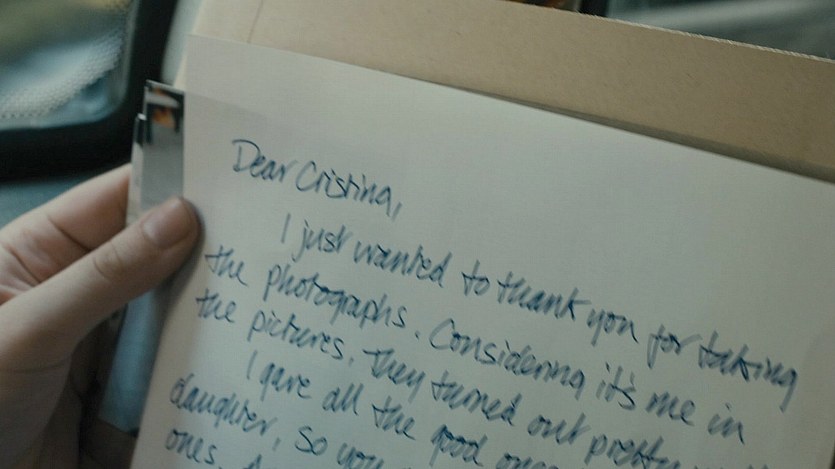 Dear Cristina,
I just wanted to thank you for taking
the photographs. Considering it's me in
the pictures, they turned out pretty
I gave all the good ones
daughter, so you
ones.